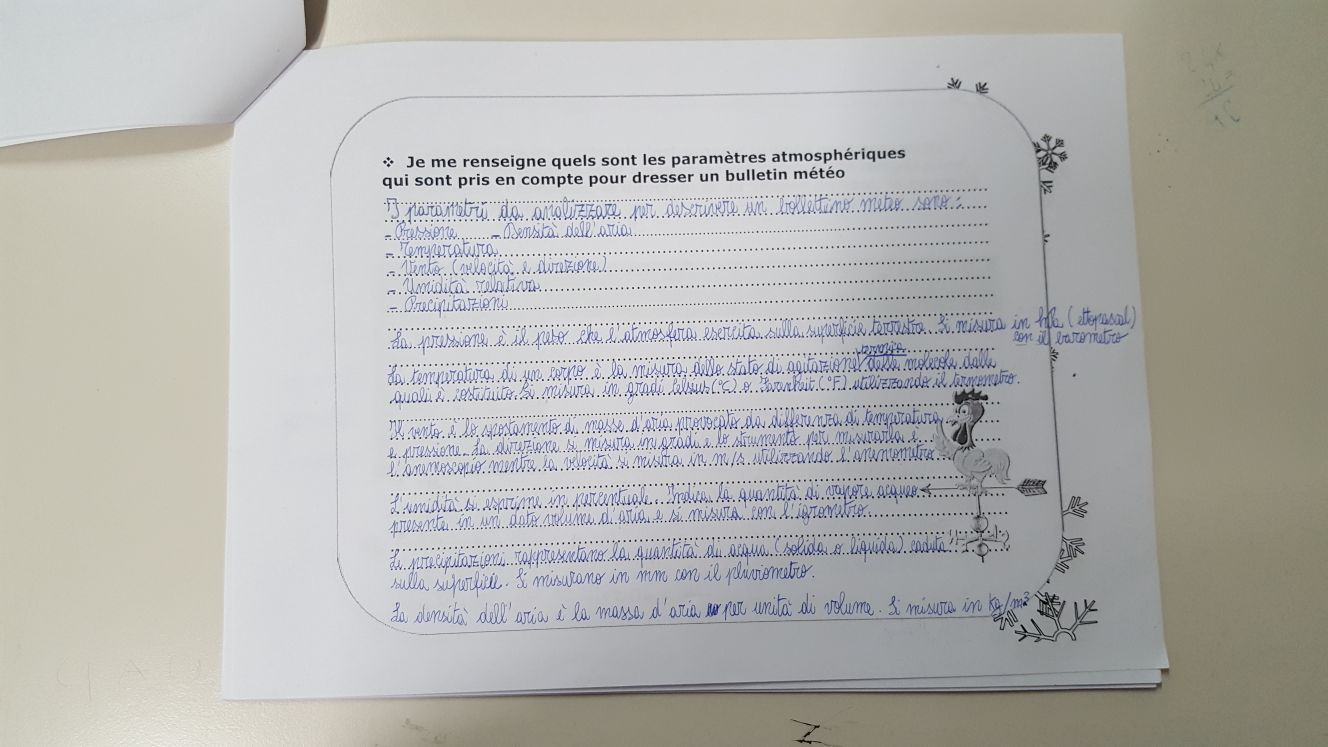 ❖ Je me renseigne quels sont les paramètres atmosphériques
qui sont pris en compte pour dresser un bulletin météo
I parametri da analizzare per descrivere un bollettino meteo sono:
- Pressione - Densità dell'aria
- Temperatura
- Vento (velocità e direzione)
- Umidità relativa
- Precipitazioni
La pressione è il peso che l'atmosfera esercita sulla superficie terrestre. Si misura in hPa (ettopascal)
con il barometro
termica
La temperatura di un corpo è la misura dello stato di agitazione delle molecole dalle
quali è costituito. Si misura in gradi Celsius (°C) o Farenheit (°F) utilizzando il termometro.
Il vento è lo spostamento di masse d'aria provocato da differenza di temperatura
e pressione. La direzione si misura in gradi e lo strumento per misurarla è
l'anemoscopio mentre la velocità si misura in m/s utilizzando l'anemometro.
L'umidità si esprime in percentuale. Indica la quantità di vapore acqueo
presente in un dato volume d'aria e si misura con l'igrometro.
Le precipitazioni rappresentano la quantità di acqua (solida o liquida) caduta
sulla superficie. Si misurano in mm con il pluviometro.
La densità dell'aria è la massa d'aria per unità di volume. Si misura in kg/m³